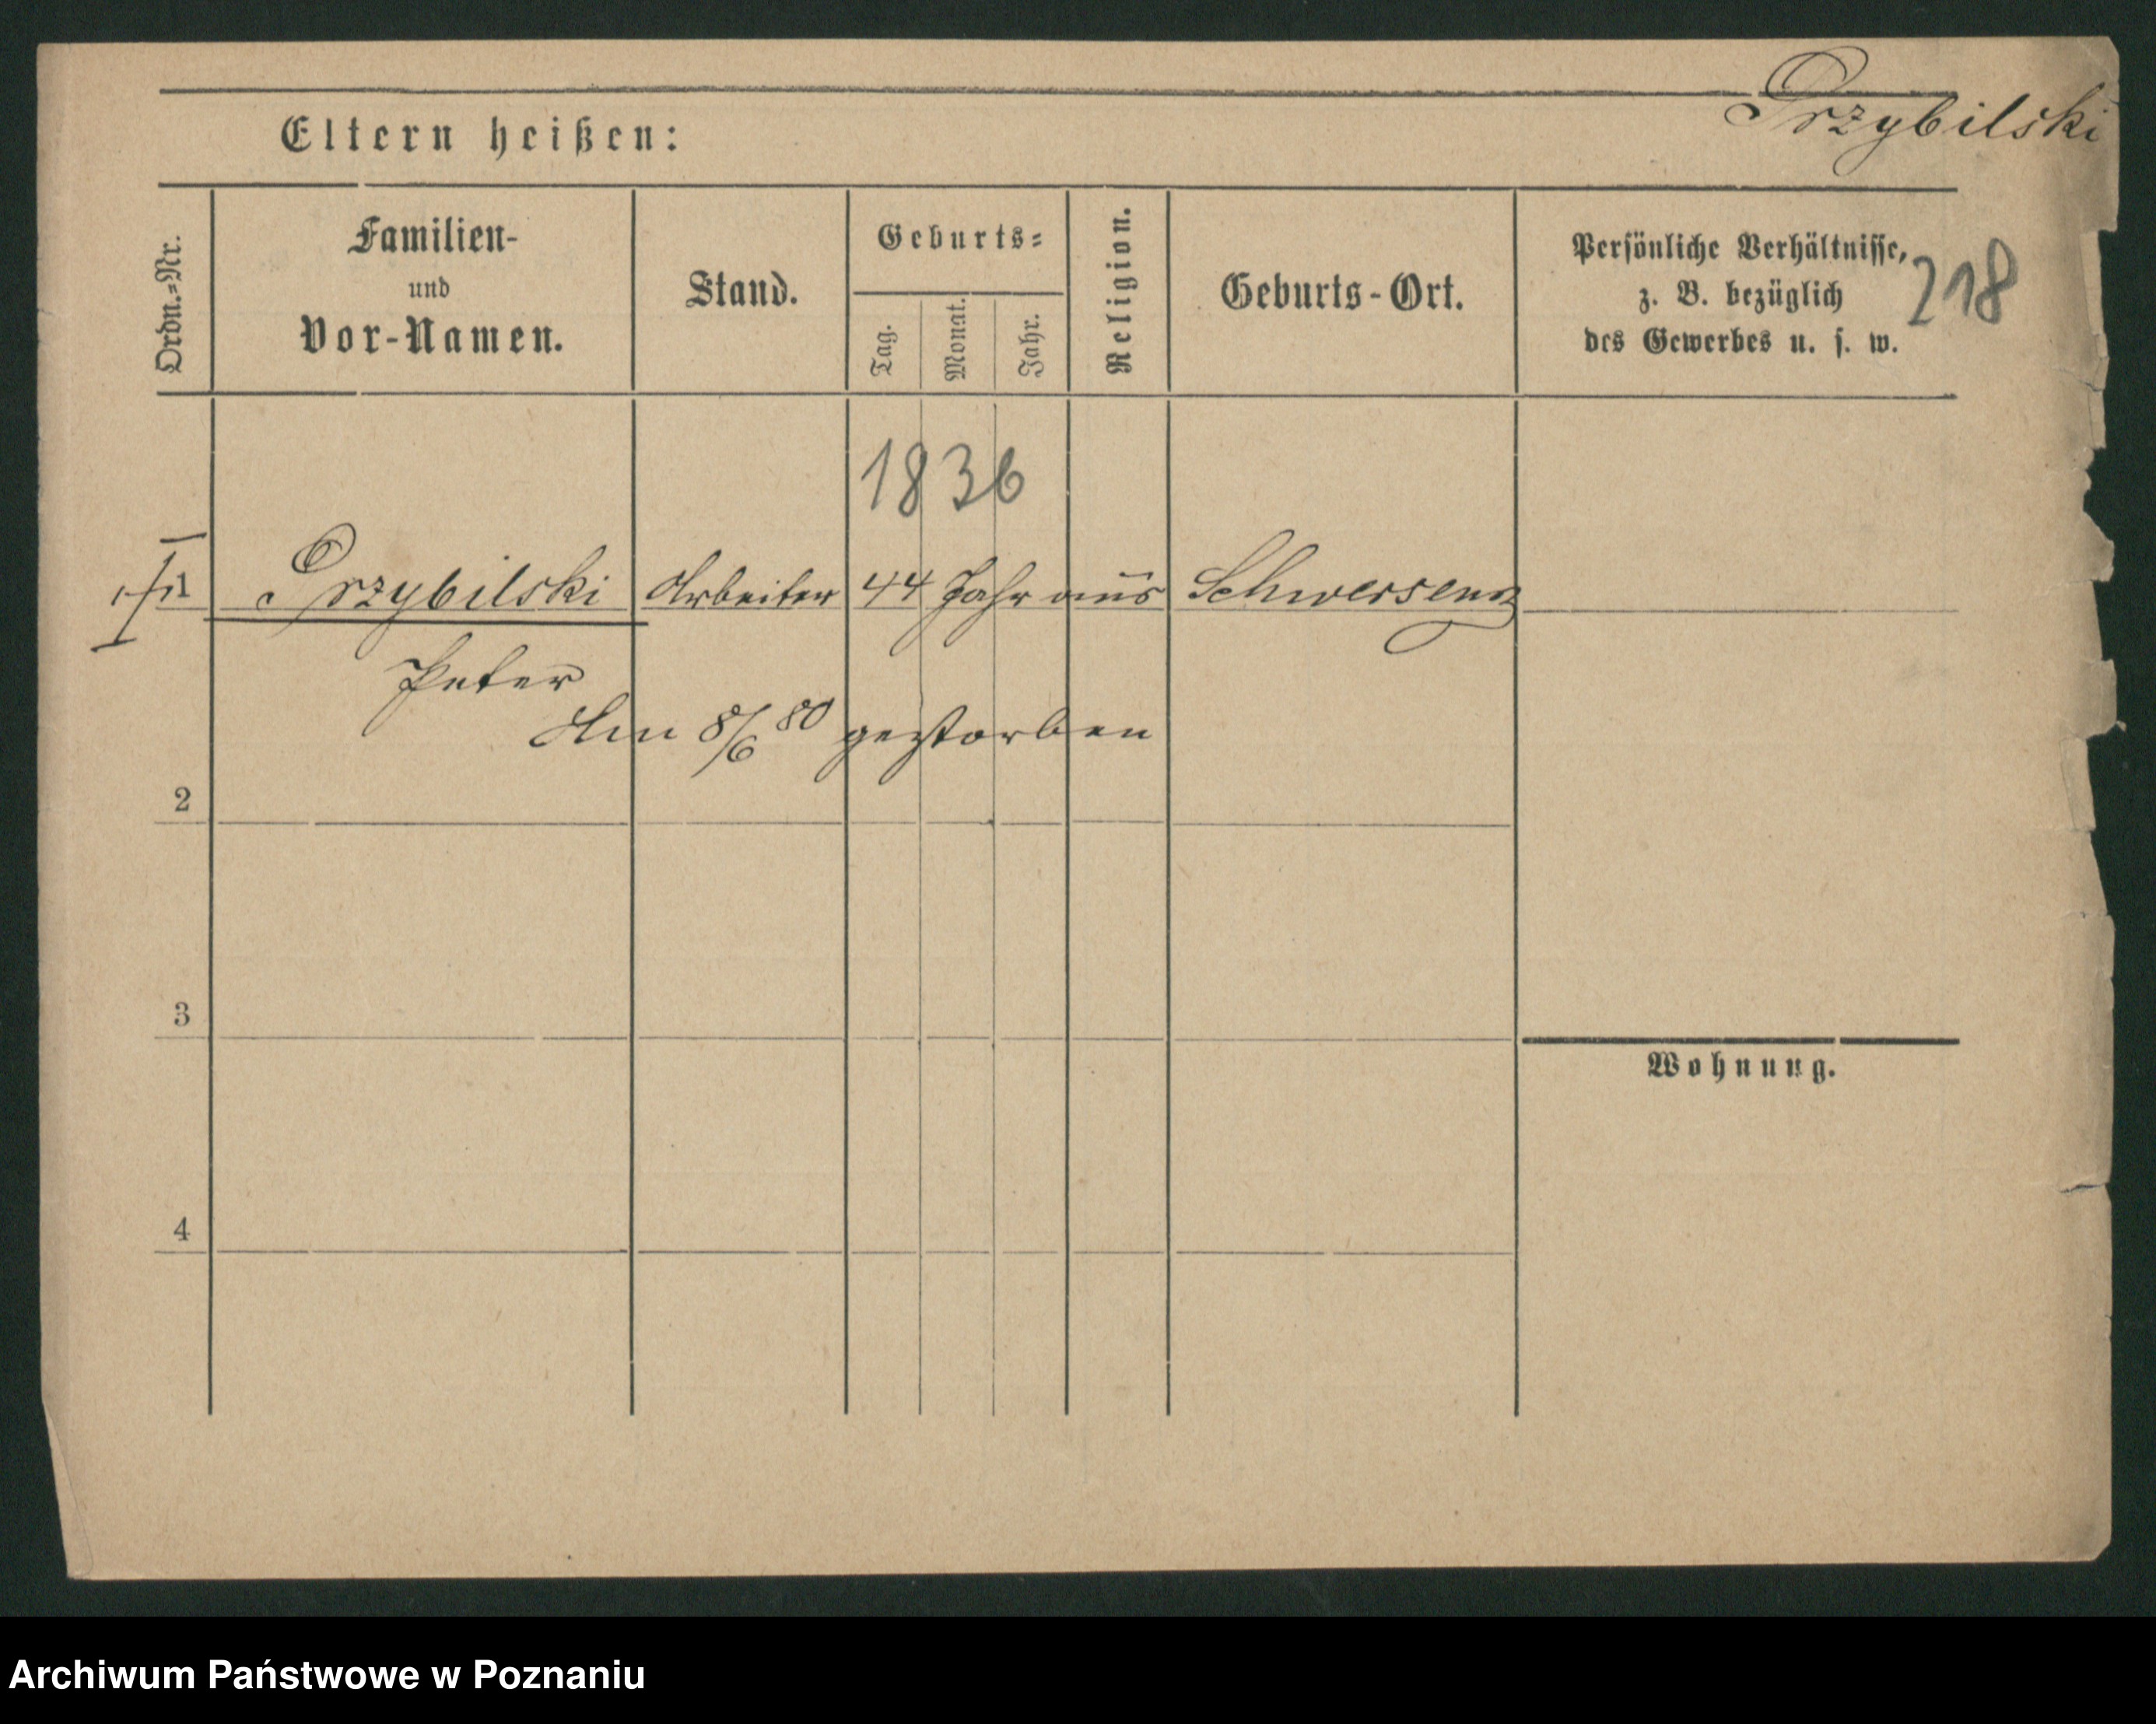 Przybilski
Eltern heißen:
Ordn.=Nr.
Familien-
und
Vor-Namen.
Stand.
Geburts=
Tag.
Monat.
Jahr.
Religion.
Geburts-Ort.
Persönliche Verhältnisse,
z. B. bezüglich
des Gewerbes u. s. w.
218
1836
1 Przybilski Arbeiter 44 Jahr aus Schwersenz
Peter
Am 8/6 80 gestorben
2
3
Wohnung.
4
Archiwum Państwowe w Poznaniu